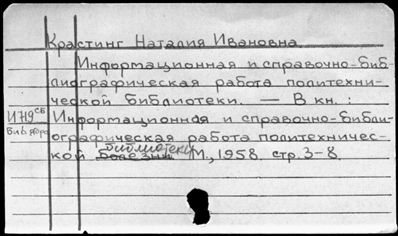 Крастинг Наталия Ивановна.
Информационная и справочно-биб-
лиографическая работа политехни-
ческой библиотеки. — В кн.:
Информационная и справочно-библи-
ографическая работа политехничес-
кой болезни библиотеки М., 1958. стр. 3-8.